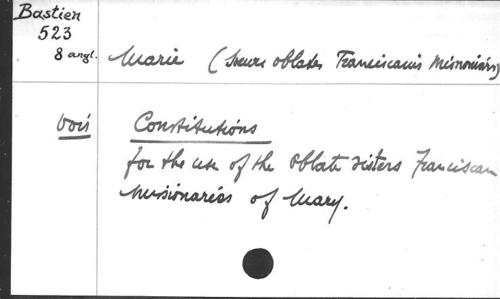 Bastien
523
8 angl.
Marie (Soeurs oblates Franciscaines Missionaires)
Voir
Constitutions
for the use of the Oblate sisters Franciscan
Missionaries of Mary.